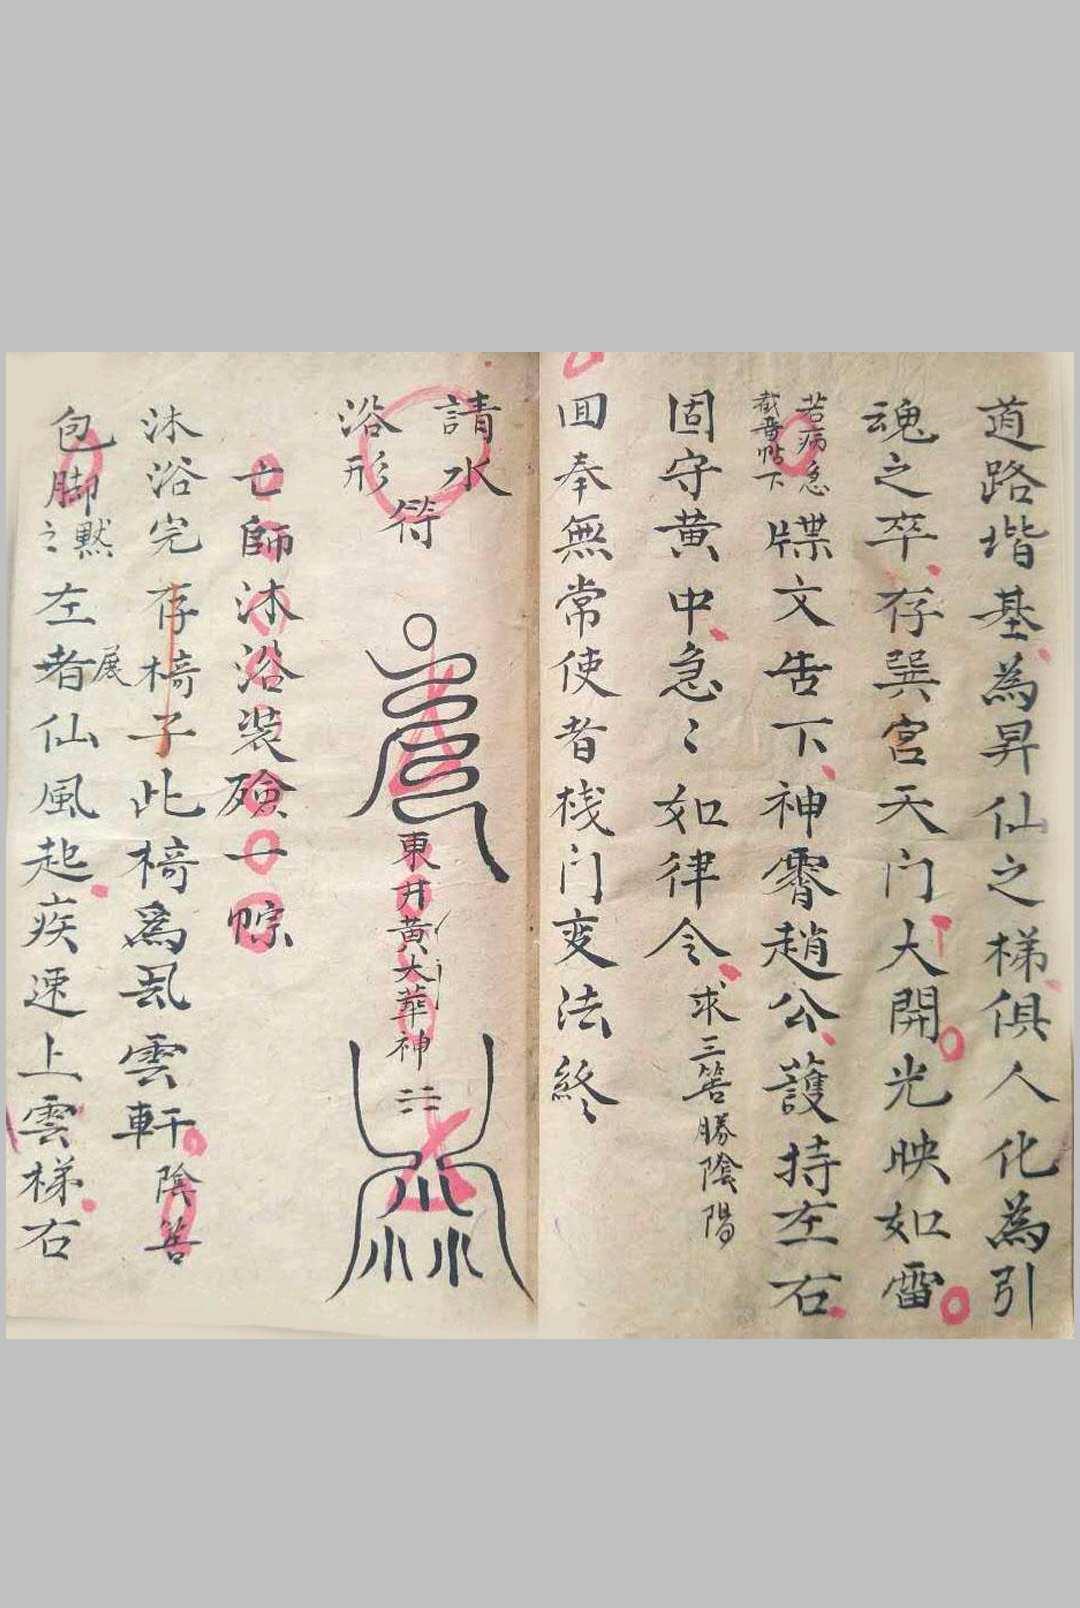 道路堦基為昇仙之梯俱人化為引
魂之卒存巽宮天门大開光映如雷
若病急
截番帖下
牒文告下神霄趙公護持左右
固守黄中急〻如律令求三筶勝陰陽
回奉無常使者栈门变法終
請水
浴形
符
東井黃大華神
亡師沐浴装殮一宗
沐浴完存椅子此椅為風雲軒陰筶
包脚默之左者展仙風起疾速上雲梯右